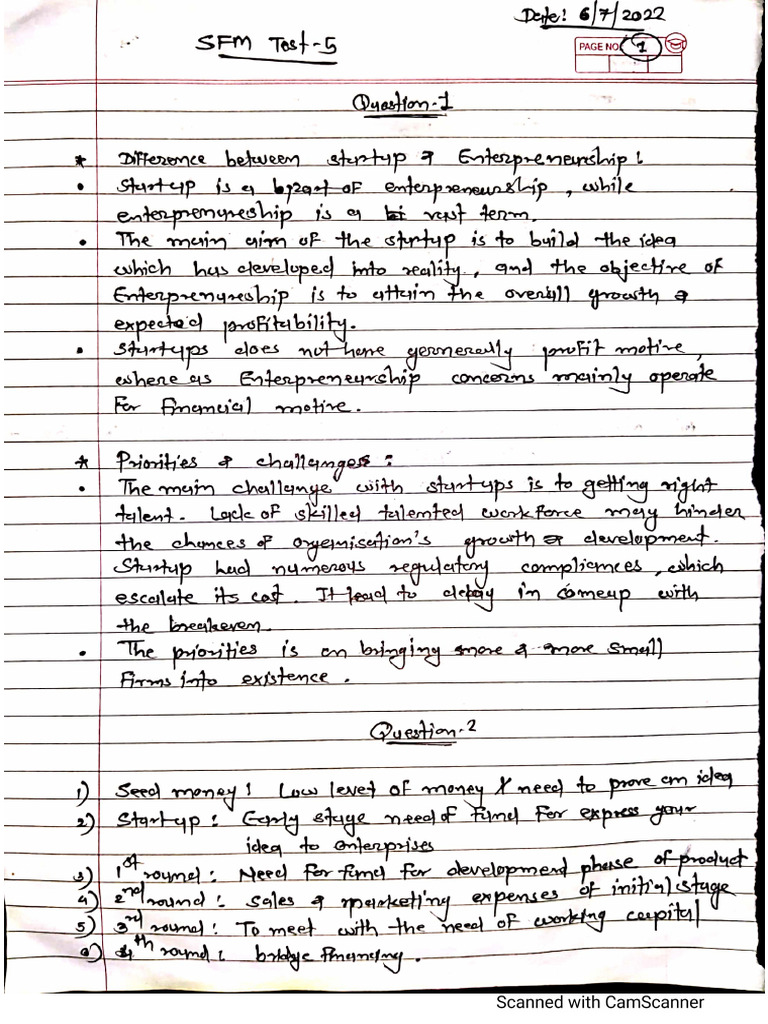 Date: 6/7/2022
SFM Test-5
PAGE NO. 1
Question-1
* Difference between startup & Enterpreneurship:
• Startup is a part of enterpreneurship, while
enterprenureship is a vast term.
• The main aim of the startup is to build the idea
which has developed into reality, and the objective of
Enterprenureship is to attain the overall growth &
expected profitability.
• Startups does not have gernerally profit motive,
where as Enterpreneurship concerns mainly operate
for financial motive.
* Priorities & challanges:
• The main challange with startups is to getting right
talent. Lack of skilled talented workforce may hinder
the chances of organisation's growth & development.
Startup had numerous regulatory compliances, which
escalate its cost. It lead to delay in comeup with
the breakeven.
• The priorities is on bringing more & more small
firms into existence.
Question-2
1) Seed money: Low level of money need to prove an idea
2) Startup: Early stage need of fund for express your
idea to enterprises
3) 1st round: Need for fund for development phase of product
4) 2nd round: Sales & marketing expenses of initial stage
5) 3rd round: To meet with the need of working capital
6) 4th round: bridge financing.
Scanned with CamScanner